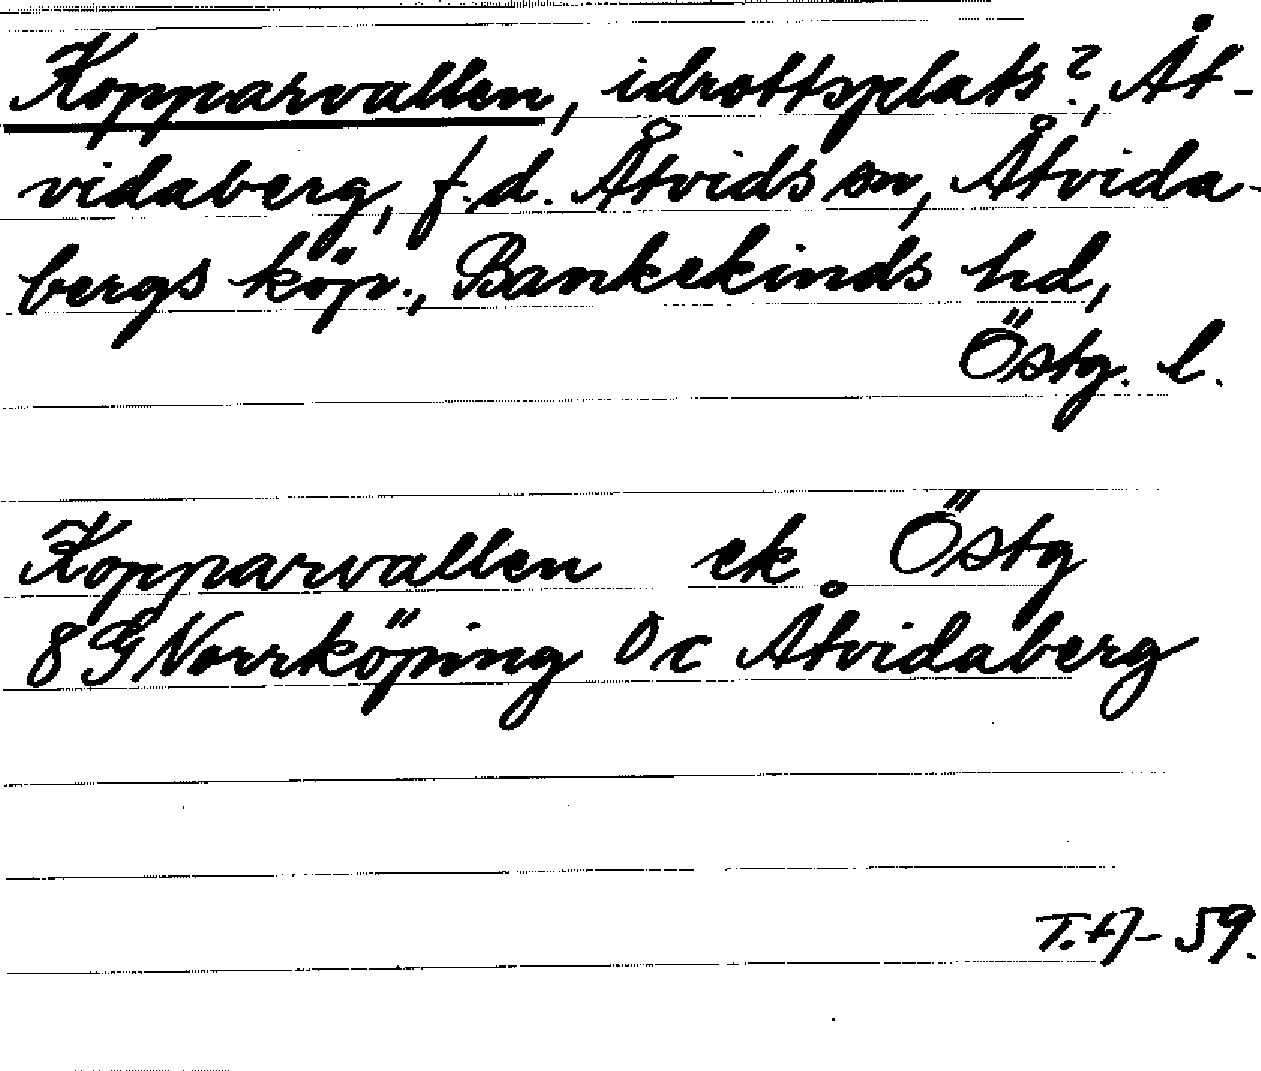 Kopparvallen, idrottsplats?, Åt-
vidaberg, f.d. Åtvids sn, Åtvida-
bergs köp., Bankekinds hd,
Östg. l.
Kopparvallen ek Östg
8 G Norrköping Åtvidaberg
-59.